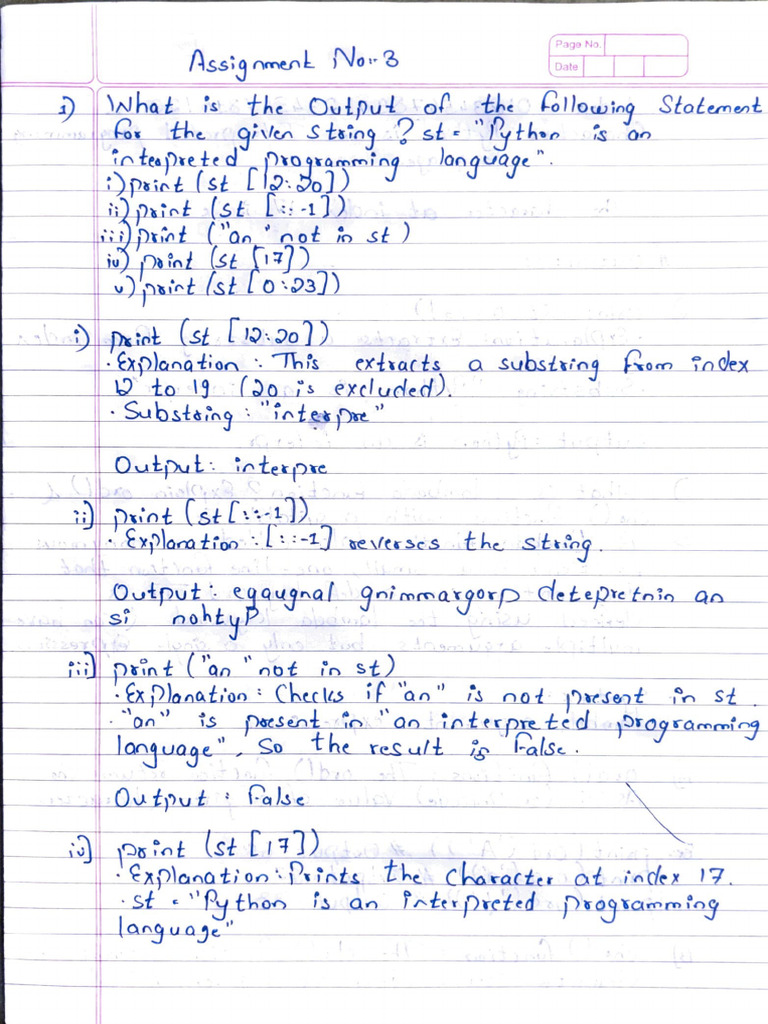 Assignment No:- 3
Page No.
Date
1) What is the Output of the following Statement
for the given string? st = "Python is an
interpreted programming language".
i) print (st [12:20])
ii) print (st [::-1])
iii) print ("an" not in st)
iv) print (st [17])
v) print (st [0:23])
i) print (st [12:20])
· Explanation : This extracts a substring from index
12 to 19 (20 is excluded).
· Substring : "interpre"
Output: interpre
ii) print (st[::-1])
· Explanation : [::-1] reverses the string.
Output: egaugnal gnimmargorp detepretnin an
si nohtyP
iii) print ("an "not in st)
· Explanation : Checks if "an" is not present in st.
· "an" is present in "an interpreted programming
language", So the result is False.
Output : False
iv) print (st [17])
· Explanation : Prints the character at index 17.
· st = "Python is an interpreted programming
language"